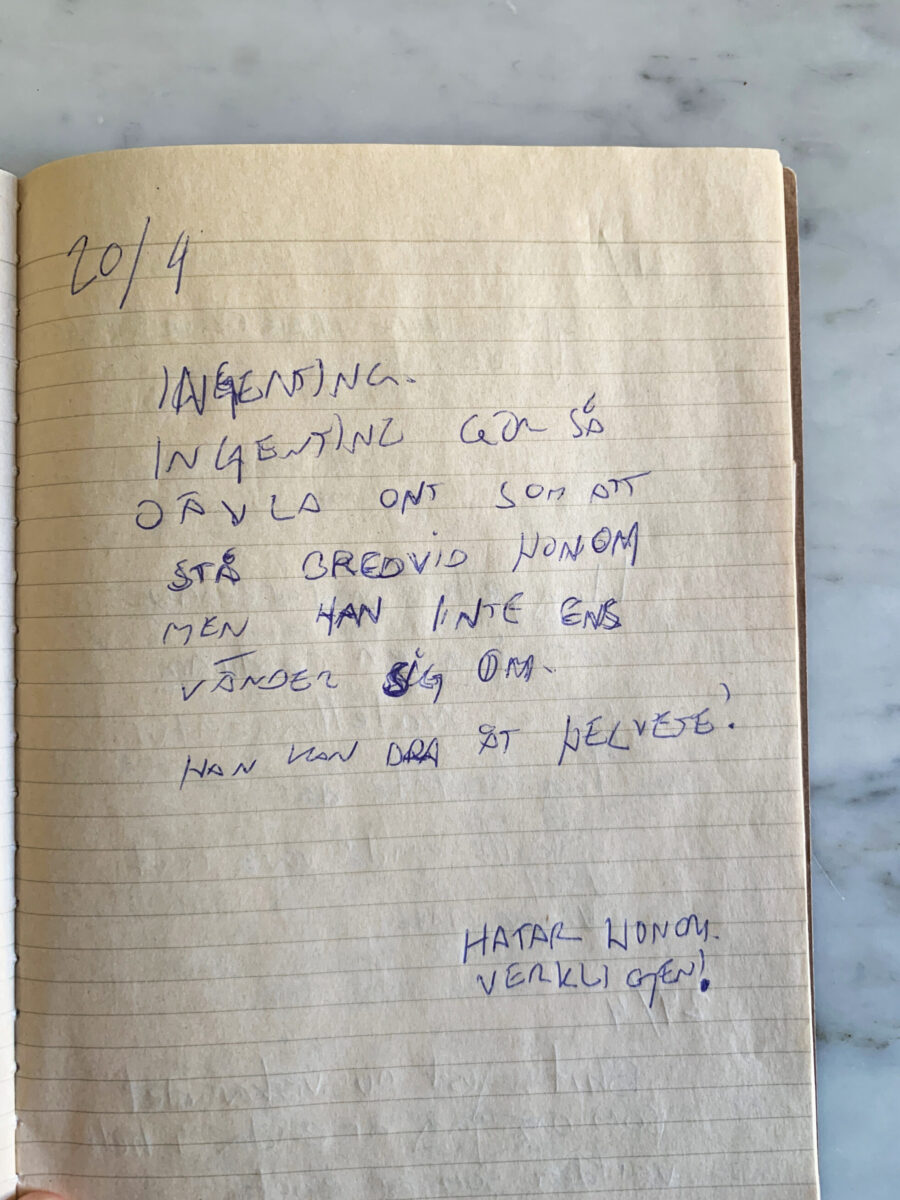 20/4
INGENTING.
INGENTING GÖR SÅ
DÄVLA ONT SOM ATT
STÅ BREDVID HONOM
MEN HAN INTE ENS
VÄNDER SIG OM.
HAN KAN DRA ÅT HELVETE!
HATAR HONOM.
VERKLIGEN!